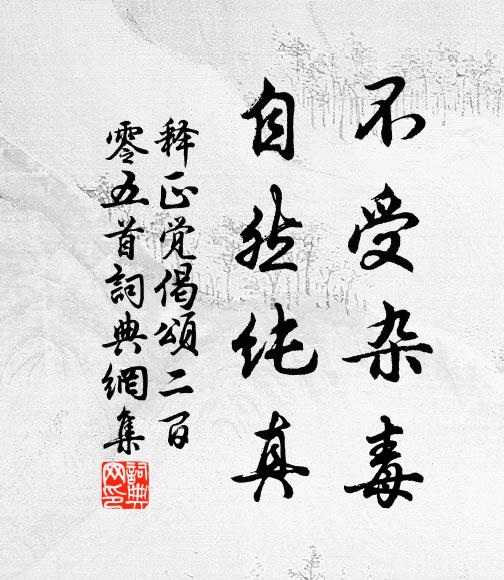 不受杂毒
自然纯真
释正觉偈颂二百
零五首詞典網集
詞典網印